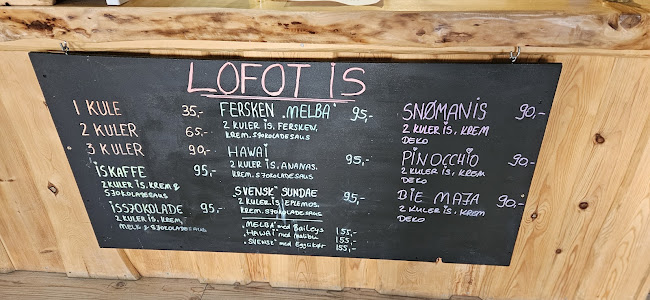 LOFOT IS
1 KULE 35,-
2 KULER 65,-
3 KULER 90,-
ISKAFFE 95,-
2 KULER IS, KREM &
SJOKOLADESAUS
ISSJOKOLADE 95,-
2 KULER IS, KREM,
MELK & SJOKOLADESAUS
FERSKEN „MELBA" 95,-
2 KULER IS, FERSKEN,
KREM, SJOKOLADESAUS
HAWAI 95,-
2 KULER IS, ANANAS,
KREM, SJOKOLADESAUS
„SVENSK" SUNDAE 95,-
2 KULER IS, EPLEMOS,
KREM, SJOKOLADESAUS
„MELBA" med Baileys 155,-
„HAWAI" med Malibu 155,-
„SVENSK" med Egglikør 155,-
SNØMANIS 90,-
2 KULER IS, KREM
DEKO
PINOCCHIO 90,-
2 KULER IS, KREM
DEKO
BIE MAJA 90,-
2 KULER IS, KREM
DEKO